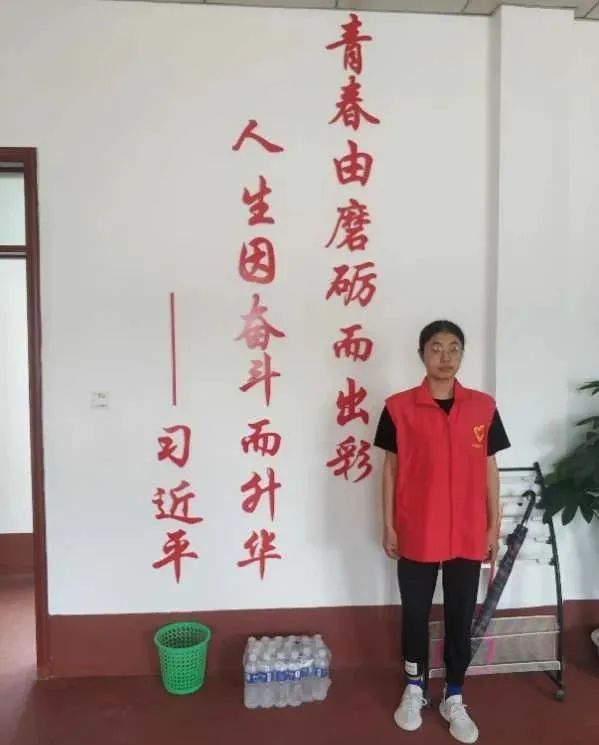 青春由磨砺而出彩
人生因奋斗而升华
——习近平